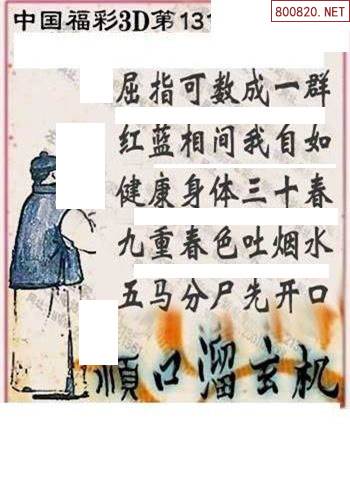 800820.NET
中国福彩3D第131
屈指可数成一群
红蓝相间我自如
健康身体三十春
九重春色吐烟水
五马分尸先开口
顺口溜玄机